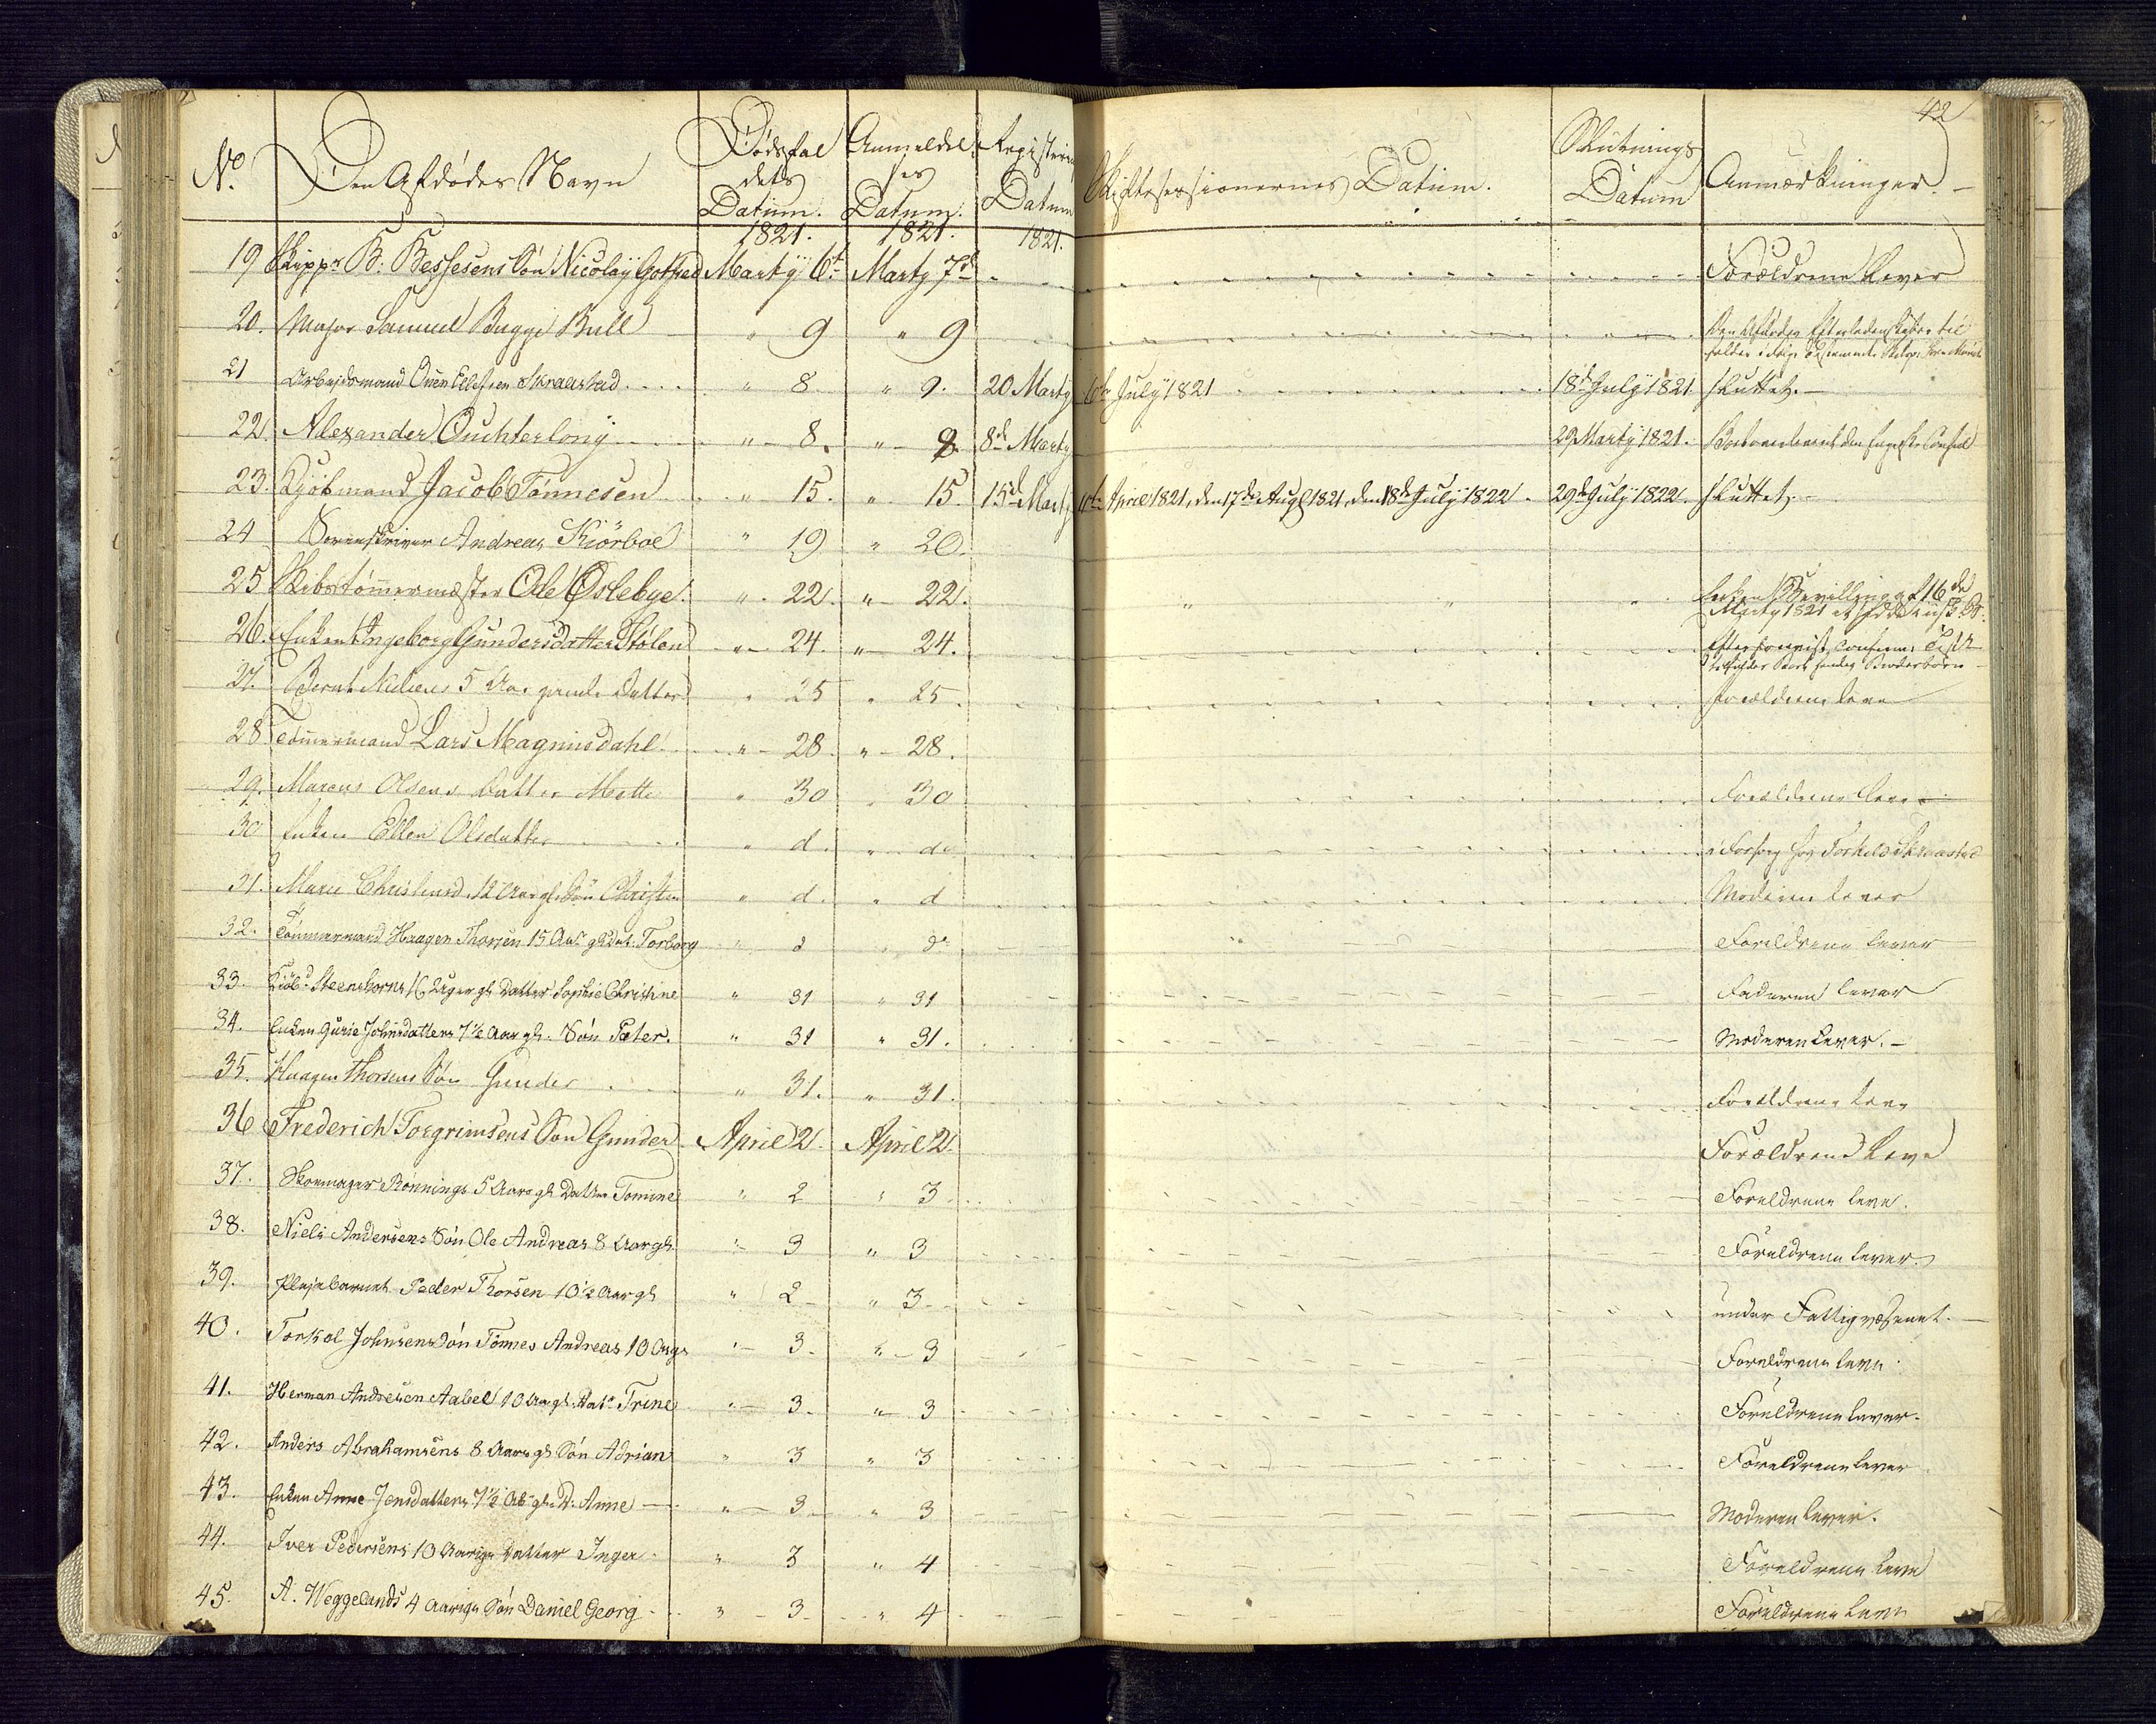 42
No. Den Afdødes Navn Dødsfal Anmeldel Registerin Skiftesessionernes Datum. Slutnings Anmærkninger.
dets ses Datum
Datum. Datum. Datum
1821. 1821. 1821.
19 Skippr B. Bessesens Søn Nicolay Martÿ 6t Marty 7d Forældrene Lever
20. Major Samuel Bugge Bull " 9 " 9 Den Afdødes
21 Arbeidsmand Skraastad " 8 " 9. 20 Marty 6te July 1821 18d July 1821 sluttet.
22. Alexander Ouchterlony " 8. " 8. 8d Marty 29 Martÿ 1821. den Engelske Consul
23. Kjöbmand Jacob Tønnesen " 15. " 15. 15d Marty April 1821, den 17de Augt 1821, den 18de July 1822. 29d July 1822. sluttet.
24 Sorenskriver Andreas Kiörboe " 19 " 20.
25 Skibstømmermester Ole Oslebye. " 22. " 22. Enken Bevilling af 16de
Marty 1821
26. Enken Ingeborg Gundersdatter Stølen " 24. " 24.
27. Bernt Nielsens 5 Aar gamle Datter " 25 " 25. Forældrene leve
28 Tømmermand Lars Magnusdahl " 28 " 28.
29. Marcus Olsens Datter Mette " 30 " 30 Forældrene leve
30 Enken Ellen Olsdatter " d. " do i Forsorg hos Torkild Skraastad
31. 12 Aar gl. Søn Christen " d. " d Moderen lever
32. Tömmermand Haagen Thorsen 15 Aar gl. Dat. Torborg " d " do Forældrene lever
33. Kiöbd Steenhorns 16 Uger gl Datter Sophie Christine " 31 " 31 Faderen lever
34. Enken Gurie Johnsdatters 7½ Aar gl. Søn Peter. " 31 " 31. Moderen lever.
35. Haagen Thorsens Søn Gunder " 31. " 31. Forældrene leve
36 Frederich Torgrimsens Søn Gunder April 2. April 2. Forældrene Leve
37. Skomager Rønnings 5 Aars gl Datter Tomine " 2 " 3 Forældrene leve.
38. Niels Andersens Søn Ole Andreas 8 Aar gl. " 3 " 3 Forældrene lever.
39. Plejebarnet Peder Thorsen 10½ Aar gl " 2 " 3 under Fattigvæsenet.
40. Torkel Johnsens Søn Tönnes Andreas 10 " 3 " 3 Forældrene leve.
41. Herman Andresen Aabel 10 Aar gl. Datr Trine " 3. " 3 Forældrene lever.
42. Anders Abrahamsens 8 Aars gl Søn Adrian " 3 " 3 Forældrene lever
43. Enken Anne Jensdatters 7½ Ar gl. D. Anne " 3 " 3 Moderen lever.
44. Iver Pedersens 10 Aarige Datter Inger " 3 " 4 Forældrene leve
45. A. Weggelands 4 Aarige Søn Daniel Georg " 3 " 4 Forældrene leve